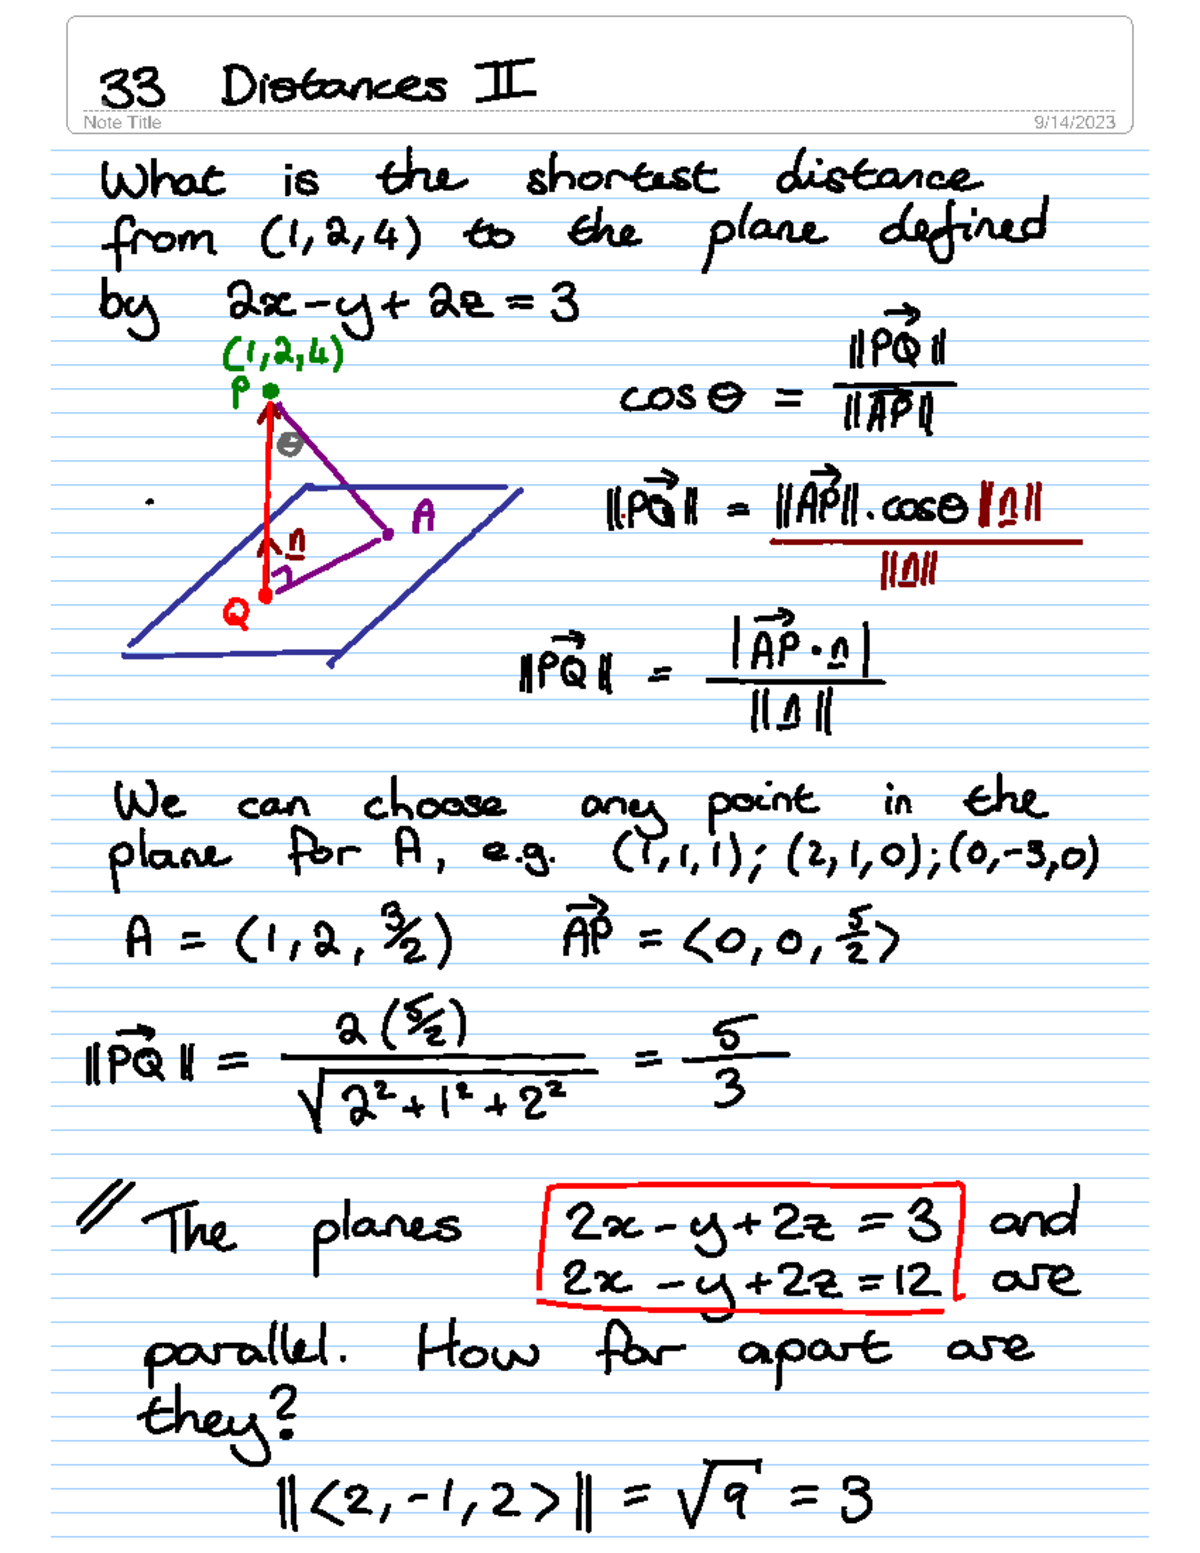 33 Distances II
Note Title
9/14/2023
What is the shortest distance
from (1,2,4) to the plane defined
by 2x-y+2z=3
(1,2,4)
P
θ
A
n
Q
cosθ = ||PQ→|| / ||AP→||
||PQ→|| = ||AP→||.cosθ ||n|| / ||n||
||PQ→|| = |AP→·n| / ||n||
We can choose any point in the
plane for A, e.g. (1,1,1); (2,1,0);(0,-3,0)
A = (1,2,3/2) AP→ = <0,0,5/2>
||PQ→|| = 2(5/2) / √(2²+1²+2²) = 5/3
// The planes 2x-y+2z=3 and
2x-y+2z=12 are
parallel. How far apart are
they?
||<2,-1,2>|| = √9 = 3